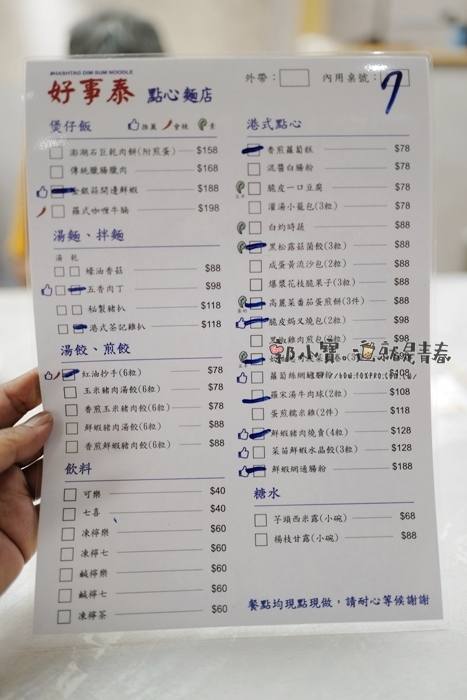 #HASHTAG DIM SUM NOODLE
好事泰 點心麵店
外帶： 內用桌號： 7
煲仔飯 推薦 會辣 素
澎湖石巨乾肉餅(附煎蛋) $158
傳統臘腸臘肉 $168
金銀蒜開邊鮮蝦 $188
羅式咖哩牛腩 $198
湯麵、拌麵
湯 乾
蠔油香菇 $88
五香肉丁 $98
秘製豬扒 $118
港式茶記雞扒 $118
湯餃、煎餃
紅油抄手(6粒) $78
玉米豬肉湯餃(6粒) $78
香煎玉米豬肉餃(6粒) $78
鮮蝦豬肉湯餃(6粒) $88
香煎鮮蝦豬肉餃(6粒) $88
飲料
可樂 $40
七喜 $40
凍檸樂 $60
凍檸七 $60
鹹檸樂 $60
鹹檸七 $60
凍檸茶 $60
港式點心
香煎蘿蔔糕 $78
混醬白腸粉 $78
脆皮一口豆腐 $78
灌湯小籠包(3粒) $78
白灼時蔬 $88
黑松露菇菌餃(3粒) $88
成蛋黃流沙包(2粒) $88
爆漿花枝脆果子(3粒) $88
高麗菜番茄蛋煎餅(3件) $88
脆皮焗叉燒包(2粒) $98
$98
郭小寶。這就是青春
蘿蔔絲網 $108
HTTP://WWW.FOXPRO.COM.TW
羅宋湯牛肉球(2粒) $108
蛋煎糯米雞(2件) $118
鮮蝦豬肉燒賣(4粒) $128
菜苗鮮蝦水晶餃(3粒) $128
鮮蝦網通腸粉 $188
糖水
芋頭西米露(小碗) $68
楊枝甘露(小碗) $88
餐點均現點現做，請耐心等候謝謝